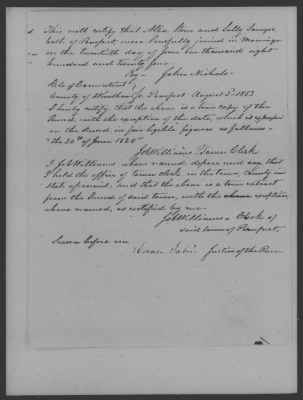 This will certify that Alba Stone and Sally Sawyer
both of Pomfret, were lawfully joined in Marriage
on the twentieth day of June one thousand eight
hundred and twenty four
By John Nichols
State of Connecticut
County of Windham Pomfret August 3d 1853
I hereby certify that the above is a true copy of the
Record, with the exception of the date, which is expressed
on the Record, in fair legible figures as follows
"the 20th of June 1824"
Job Williams Town Clerk
I Job Williams above named depose and say, that
I hold the office of town clerk in the town, County and
State aforesaid, and that the above is a true extract
from the Records of said town, with the exception
above named, as certified by me.
Job Williams Clerk of
said town of Pomfret
Sworn before me
Justice of the Peace